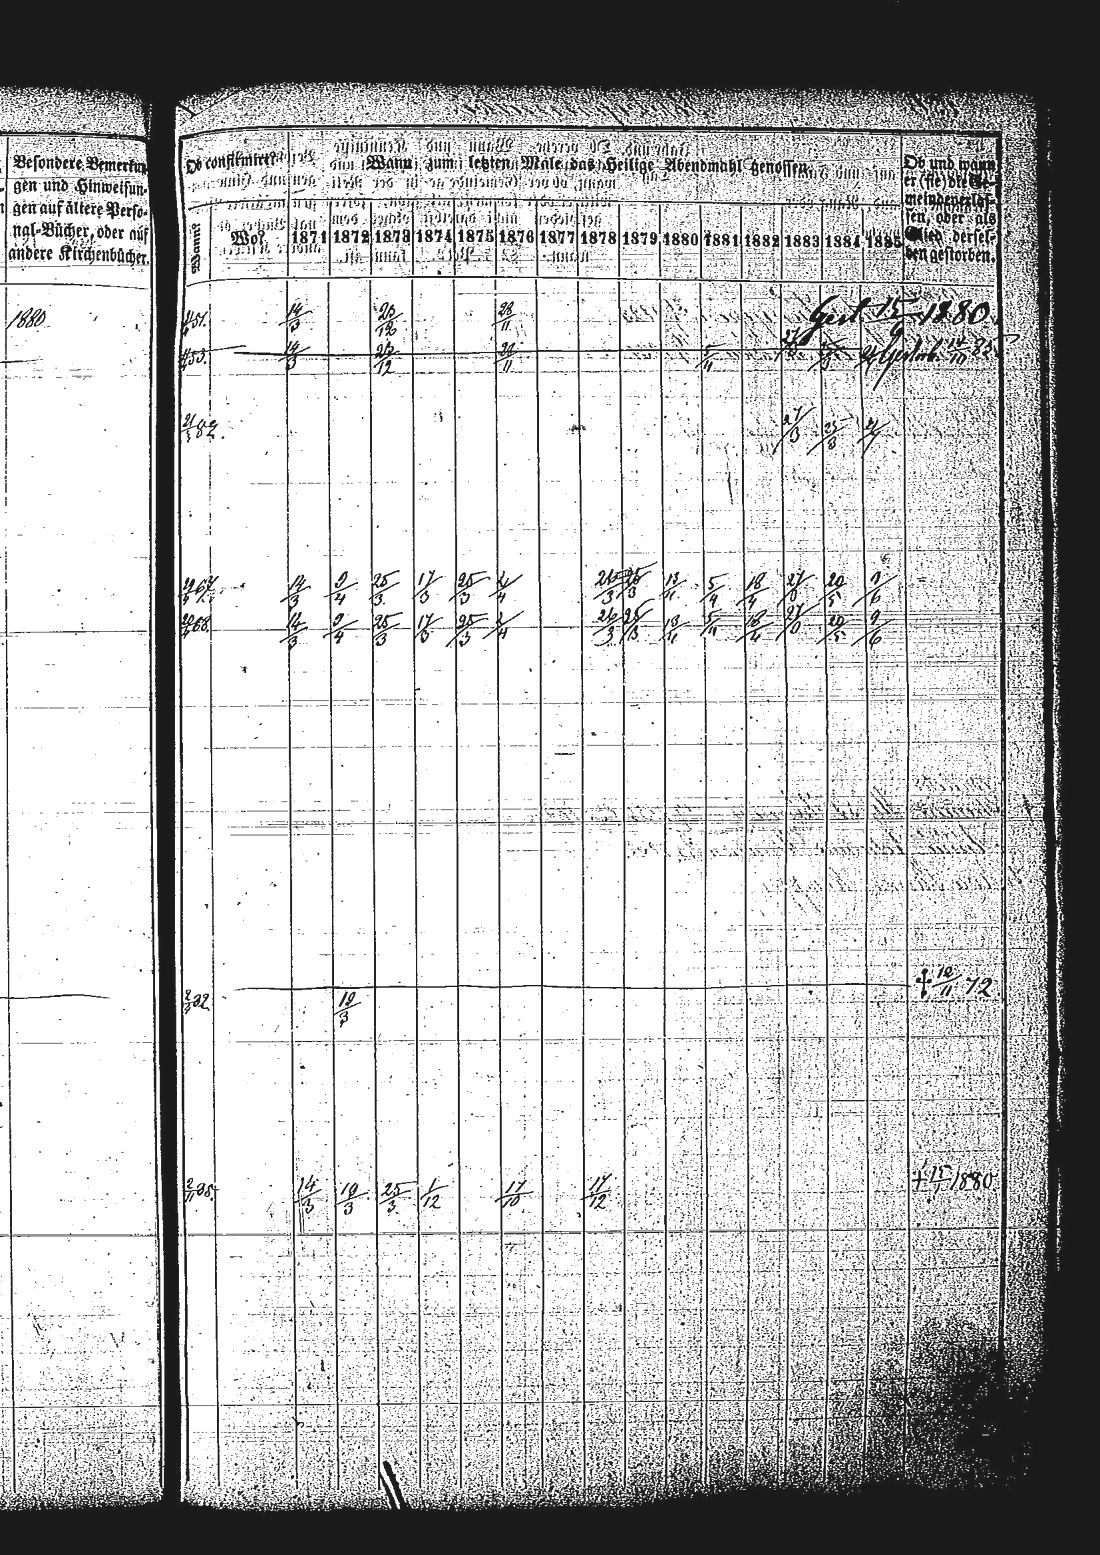 Besondere Bemerkun-
gen und Hinweisun-
gen auf ältere Perso-
nal-Bücher, oder auf
andere Kirchenbücher.
1880
Ob confirmirt?
Wann zum letzten Male das Heilige Abendmahl genossen.
Ob und wann
er (sie) die Ge-
meinde verlas-
sen, oder als
Glied dersel-
ben gestorben.
Wann? Wo? 1871 1872 1873 1874 1875 1876 1877 1878 1879 1880 1881 1882 1883 1884 1885
51. 14/3 26/12 28/11 Gest 15/9 1880.
53. 14/3 26/12 5/4 27/8 Gestorb. 14/10 85
82. 27/8 25/8
14/3 9/4 25/3 17/3 25/3 2/4 26/3 25/3 5/4 27/8 20/5 9/6
68. 14/3 9/4 25/3 17/3 25/3 2/4 26/3 25/3 5/4 27/8 20/5 9/6
32. 19/3 † 12/11 72
2/11 38. 14/3 19/3 25/3 1/12 17/10 17/12 † 1880